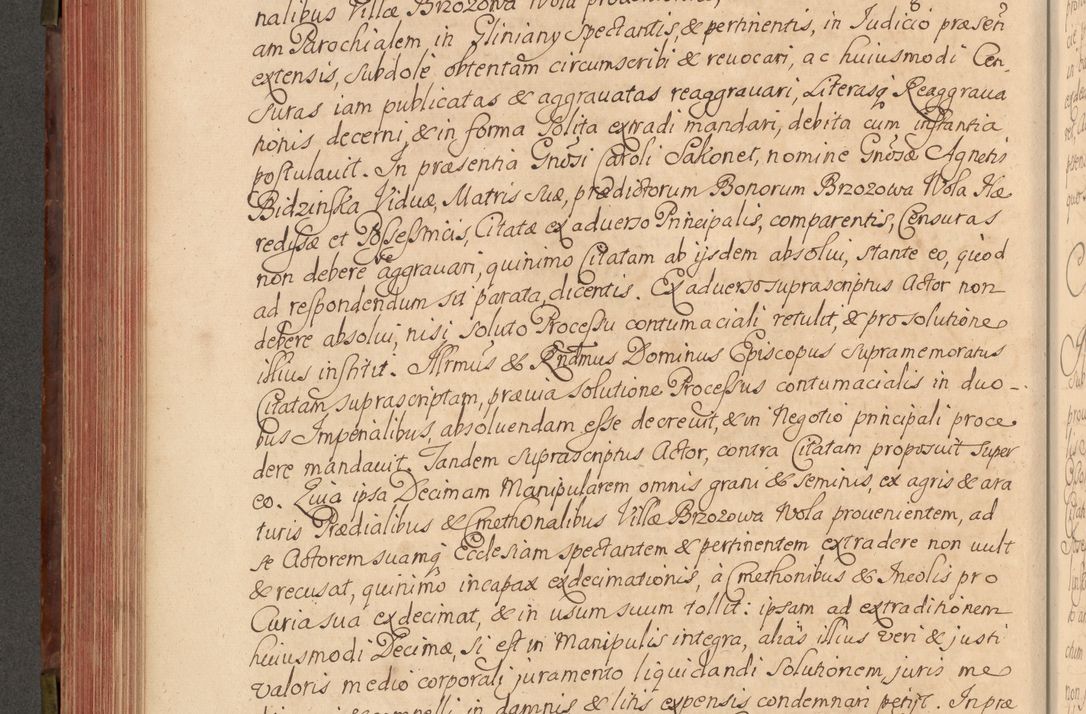 nalibus Villæ Brzozowa Wola
am Parochialem in Gliniany spectantis, & pertinentis, in Iudicio præsen
extensis, subdole obtentam circumscribi & reuocari, ac huiusmodi Cen-
suras iam publicatas & aggrauatas reaggrauari, Literasq Reaggraua
tionis decerni, & in forma solita extradi mandari, debita cum instantia
postulauit. In præsentia Gnosi Caroli Sakonet, nomine Gnosæ Agnetis
Bidzinska Viduæ, Matris suæ, prædictorum Bonorum Brzozowa Wola Hæ
redissæ et Possestricis, Citatæ ex aduerso Principalis, comparentis, Censuras
non debere aggrauari, quinimo Citatam ab ijsdem absolui, stante eo, quod
ad respondendum sit parata, dicentis. Ex aduerso suprascriptus Actor non
debere absolui, nisi soluto Processu contumaciali retulit, & pro solutione
illius institit. Illrmus & Rndmus Dominus Episcopus supramemoratus
Citatam, suprascriptam, præuia solutione Processus contumacialis in duo-
bus Imperialibus, absoluendam esse decreuit, & in Negotio principali proce
dere mandauit. Tandem suprascriptus Actor, contra Citatam proposuit super
eo. Quia ipsa Decimam Manipularem omnis grani & seminis, ex agris & ara
turis Prædialibus & Cmethonalibus Villæ Brzozowa Wola prouenientem, ad
se Actorem suamq Ecclesiam spectantem & pertinentem extradere non uult
& recusat, quinimo incapax exdecimationis, à Cmethonibus & Incolis pro
Curia sua exdecimat, & in usum suum tollit: ipsam ad extraditionem
huiusmodi Decimæ, si est in Manipulis integra, alias illius veri & justi
valoris medio corporali juramento liquidandi solutionem juris me
in damnis & litis expensis condemnari petijt. In præ